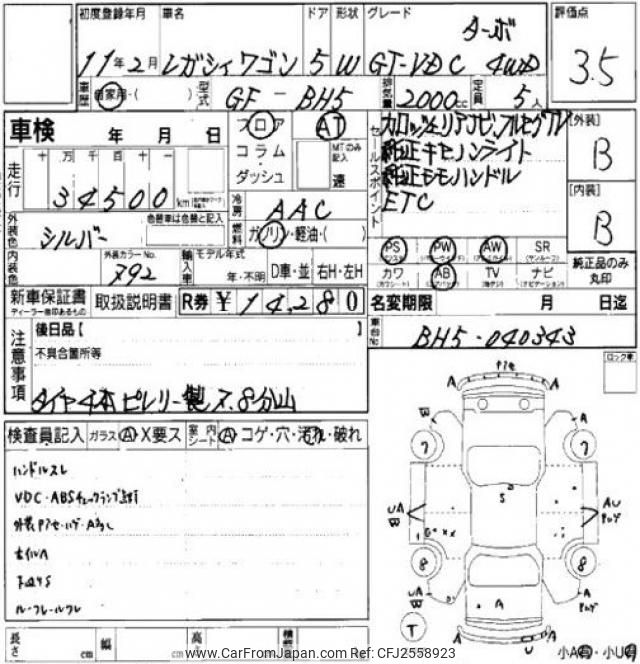 初度登録年月 車名 ドア 形状 グレード 評価点
ターボ
11年2月 レガシィワゴン 5 W GT-VDC 4WD 3.5
車歴 自家用・( ) 型式 GF-BH5 排気量 2000cc 定員 5人
車検 年 月 日
フロア AT
コラム・ MTのみ記入
ダッシュ 速
セールスポイント
ETC
[外装] B
[内装] B
走行 十 万 千 百 十
34500 km
冷房 AAC
燃料 ガソリン・軽油・( )
外装色 シルバー 色替車は色替と記入
内装色 外装カラーNo. 792
輸入車 モデル年式 年・不明 D車・並 右H・左H
PS PW AW SR (サンルーフ)
カワ AB TV ナビ
純正品のみ丸印
新車保証書 ディーラー印あるもの 取扱説明書 R券 ¥14,280
名変期限 月 日迄
注意事項 後日品【
不具合箇所等
タイヤ4本ピレリー製 7.8分山
車台No BH5-040343
ロック車
検査員記入 ガラス A・X要ス 室内シート A・コゲ・穴・汚れ・破れ
ハンドルスレ
VDC・ABSチェックランプ点灯
ホイルA
下回りS
ルーフレールワレ
A A
W A
7 7
S
UA W AU
8 8
UA W A
A
T
A U A
長さ cm 幅 cm 高さ cm
小A 小U
www.CarFromJapan.com Ref: CFJ2558923